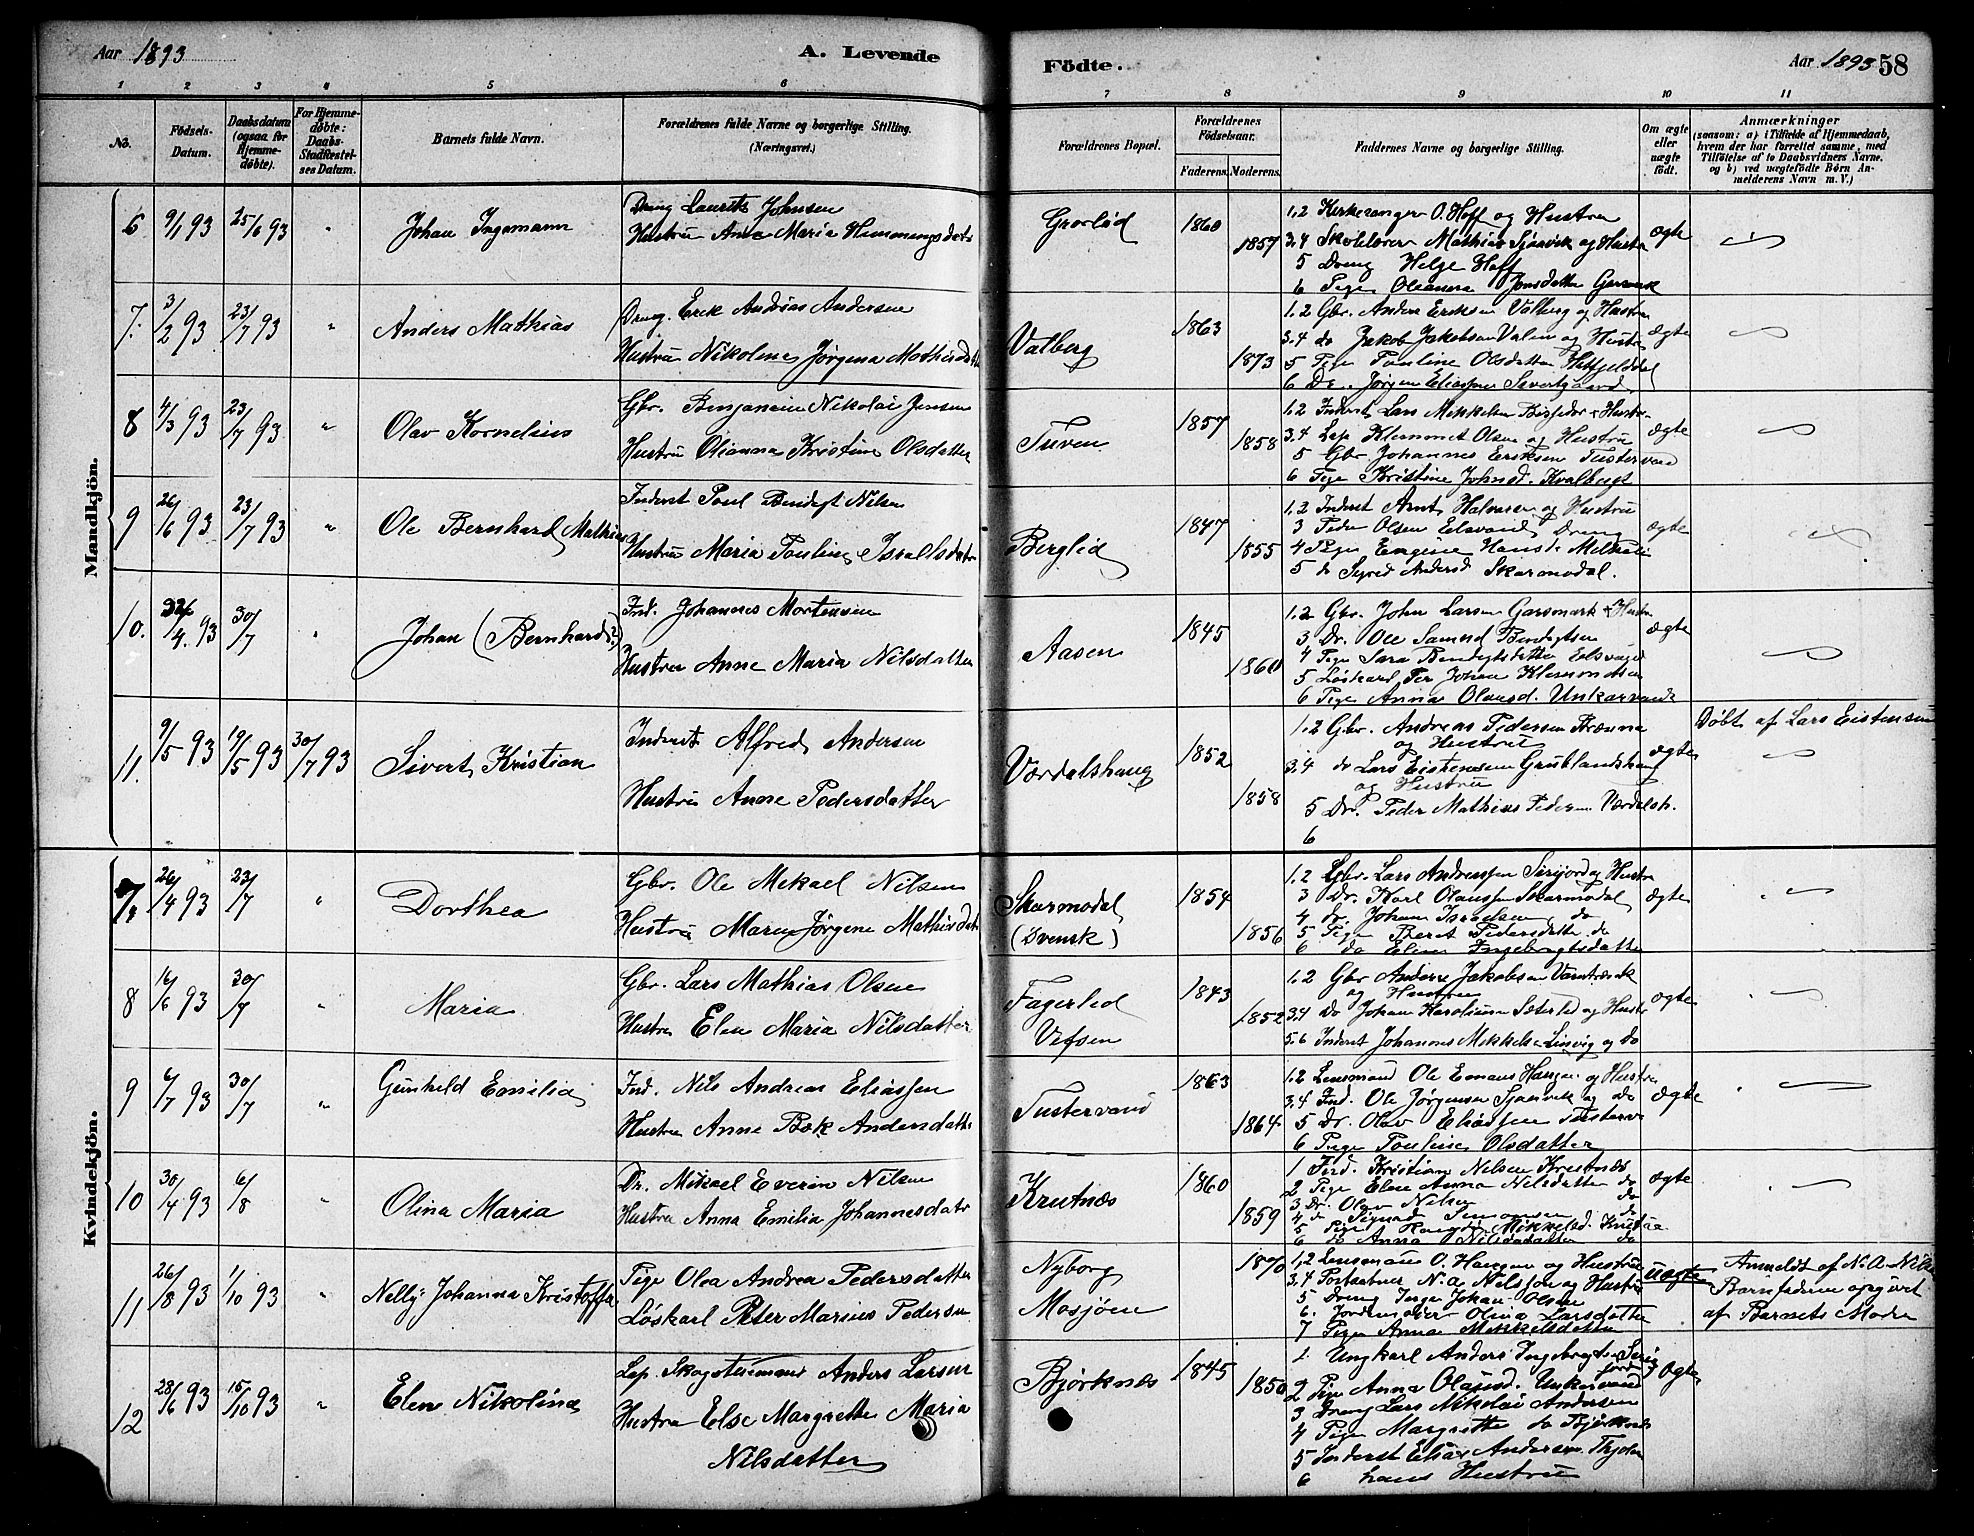 Aar 1893
A. Levende
Födte.
Aar 1893 58
1 2 3 4 5 6 7 8 9 10 11
No.
Födsels-Datum.
Daabsdatum (ogsaa for Hjemme-döbte).
For Hjemme-döbte: Daabs-Stadfæstel-ses Datum.
Barnets fulde Navn.
Forældrenes fulde Navne og borgerlige Stilling.
(Næringsvei.)
Forældrenes Bopæl.
Forældrenes Födselsaar.
Faderens. Moderens.
Faddernes Navne og borgerlige Stilling.
Om ægte eller uægte födt.
Anmærkninger
(saasom: a) i Tilfælde af Hjemmedaab,
hvem der har forrettet samme, med
Tilföielse af to Daabsvidners Navne,
og b) ved uægtefödte Börn An-
melderens Navn m. V.)
Mandkjön.
6 9/1 93 25/6 93 " Johan Ingemann
Dreng Laurits Johnsen
Hustru Ane Maria Hemmingsdatr
Grorlød 1860 1857
1,2 Kirkesanger O. Hoff og Hustru
3,4 Skolelærer Mathias Sjaavik og Hustru
5 Dreng Helge Hoff
6 Pige Oleanna Jonsdatter Garsmrk
ægte
7. 3/2 93 23/7 93 " Anders Mathias
Dreng. Erik Andreas Andersen
Hustru Nikoline Jørgena Mathisdatr
Valberg 1863 1873
1,2 Gbr. Anders Eriksen Valberg og Hustru
3,4 do Jakob Jakobsen Valen og Hustr
5 Pige Pouline Olsdatter Hatfjelddal
6 Dr. Jørgen Eliassen Sivertgaard
ægte
8 4/3 93 23/7 93 " Olav Kornelius
Gbr. Benjamin Nikolai Jensen
Hustru Olianna Kristine Olsdatter
Tuven 1857 1858
1,2 Inderst Lars Mikkelsen Hustr
3,4 Lap Klemmet Olsen og Hustru
5 Gbr Johannes Eriksen Tustervand
6 Pige Kristine Johnsd. Kvalbergt
ægte
9 26/6 93 23/7 93 " Ole Bernhard Mathias
Inderst Poul Bendigt Nilsen
Hustru Maria Pouline Israelsdatr
Berglid 1847 1855
1,2 Inderst Arnt Halvorsen og Hustru
3 Peder Olsen Elsvand, Dreng
4 Pige Engine Hansd.
5 do Sigrid Andersd Skarmodal.
ægte
10. /4 93 30/7 " Johan (Bernhard?)
Ind. Johannes Mortensen
Hustru Anne Maria Nilsdatter
Aasen 1845 1860
1.2 Gbr. John Larsen Garsmark Hustru
3 Dr. Ole Samuel Bendigtsen
4 Pige Sara Bendigtsdatter Elsvand
5 Løskarl Per Johan Klemmetsen
6 Pige Anna Olausd. Unkarvand
ægte
11. 9/5 93 19/5 93 30/7 93 Sivert Kristian
Inderst Alfred Andersen
Hustru Anne Pedersdatter
Værdalshaug 1852 1858
1.2 Gbr. Andreas Pedersen
og Hustru
3,4 do Lars Eistensen Grublandshaug
og Hustru
5 Dr. Peder Mathias Pedersen Værdalsh.
6
ægte
Døbt af Lars Eistensen
Kvindekjön.
7. 26/4 93 23/7 " Dorthea
Gbr. Ole Mekael Nilsen
Hustru Maren Jørgene Mathisdatr
Skarmodal
(Svensk)
1854 1856
1.2 Gbr. Lars Andreassen Sirijord og Hustru
3 Dr. Karl Olaussen Skarmodal
4 dr. Johan Israelsen do
5 Pige Beret Pedersdatter do
6 do Eline Ingebrigtsdatter
ægte
8 16/6 93 30/7 " Maria
Gbr. Lars Mathias Olsen
Hustru Elen Maria Nilsdatter
Fagerlid
Vefsen
1843 1852
1,2 Gbr Anders Jakobsen Varntræsk
og Hustru
3,4 Do Johan Karolius Sæterlid og Hustr
5.6 Inderst Johannes Mikkelsen Linvig og do
ægte
9 6/7 93 30/7 " Gunhild Emilia
Ind. Nils Andreas Eliassen
Hustru Anne Bok Andersdatter
Tustervand 1863 1864
1.2 Lensmand Ole Emaus Hansen og Hustru
3,4 Ind. Ole Jørgensen Sjaavik og do
5 Dr. Olav Eliassen Tusterv
6 Pige Pouline Olsdatter
ægte
10 30/4 93 6/8 " Olina Maria
Dr. Mikael Everin Nilsen
Hustru Anna Emilia Johannesdatr
Krutnæs 1860 1859
1 Ind. Kristian Nilsen Krutnæs
2 Pige Elen Anna Nilsdatter do
3 Dr. Olav Nilsen do
4 do Simonsen do
5 Pige Mikkelsd. Krutnæs
6 do Anna Nilsdatter do
ægte
11 26/8 93 1/10 93 Nelly Johanna Kristoffa
Pige Olea Andrea Pedersdatter
Løskarl Peter Marius Pedersen
Nyborg
Mosjøen
1870
1,2 Lensmann O. Hansen og Hustru
3.4 Postaabner N. A. Nilssen og Hustru
5 Dreng Inger Johan Olsen
6. Jordemoder Olina Larsdatter
7 Pige Anna Mikkelsdatter
uægte
Anmeldt af N. A. Nilsen
Barnefaderen opgivet
af Barnets Moder
12 28/6 93 15/10 93 " Elen Nikolina
Lap. Anders Larsen
Hustru Else Margrethe Maria
Nilsdatter
Bjørknæs 1845 1850
1. Ungkarl Anders Ingebrigtsen
2 Pige Anna Olausd. Unkervand
3 Dreng Lars Nikolai Andersen
4 Pige Margrethe do Bjørknæs
5 Inderst Elias Andersen
6 hans Hustru
ægte